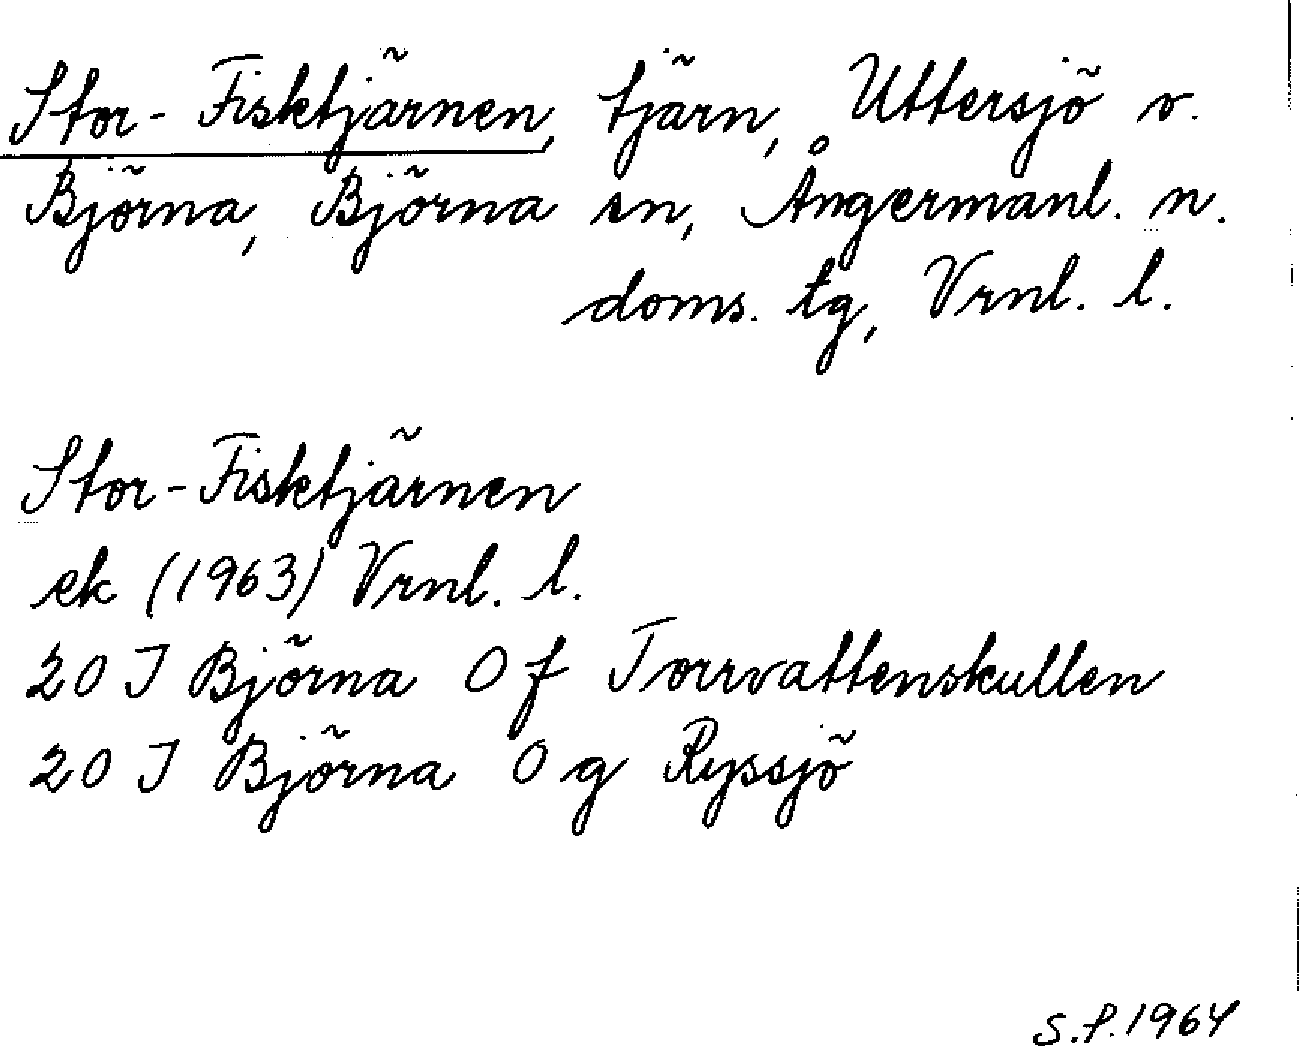 Stor-Fisktjärnen, tjärn, Uttersjö v.
Björna, Björna sn, Ångermanl. n.
doms. tg, Vrnl. l.
Stor-Fisktjärnen
ek (1963) Vrnl. l.
20 I Björna 0 f Torrvattenskullen
20 I Björna 0 g Ryssjö
S.P. 1964